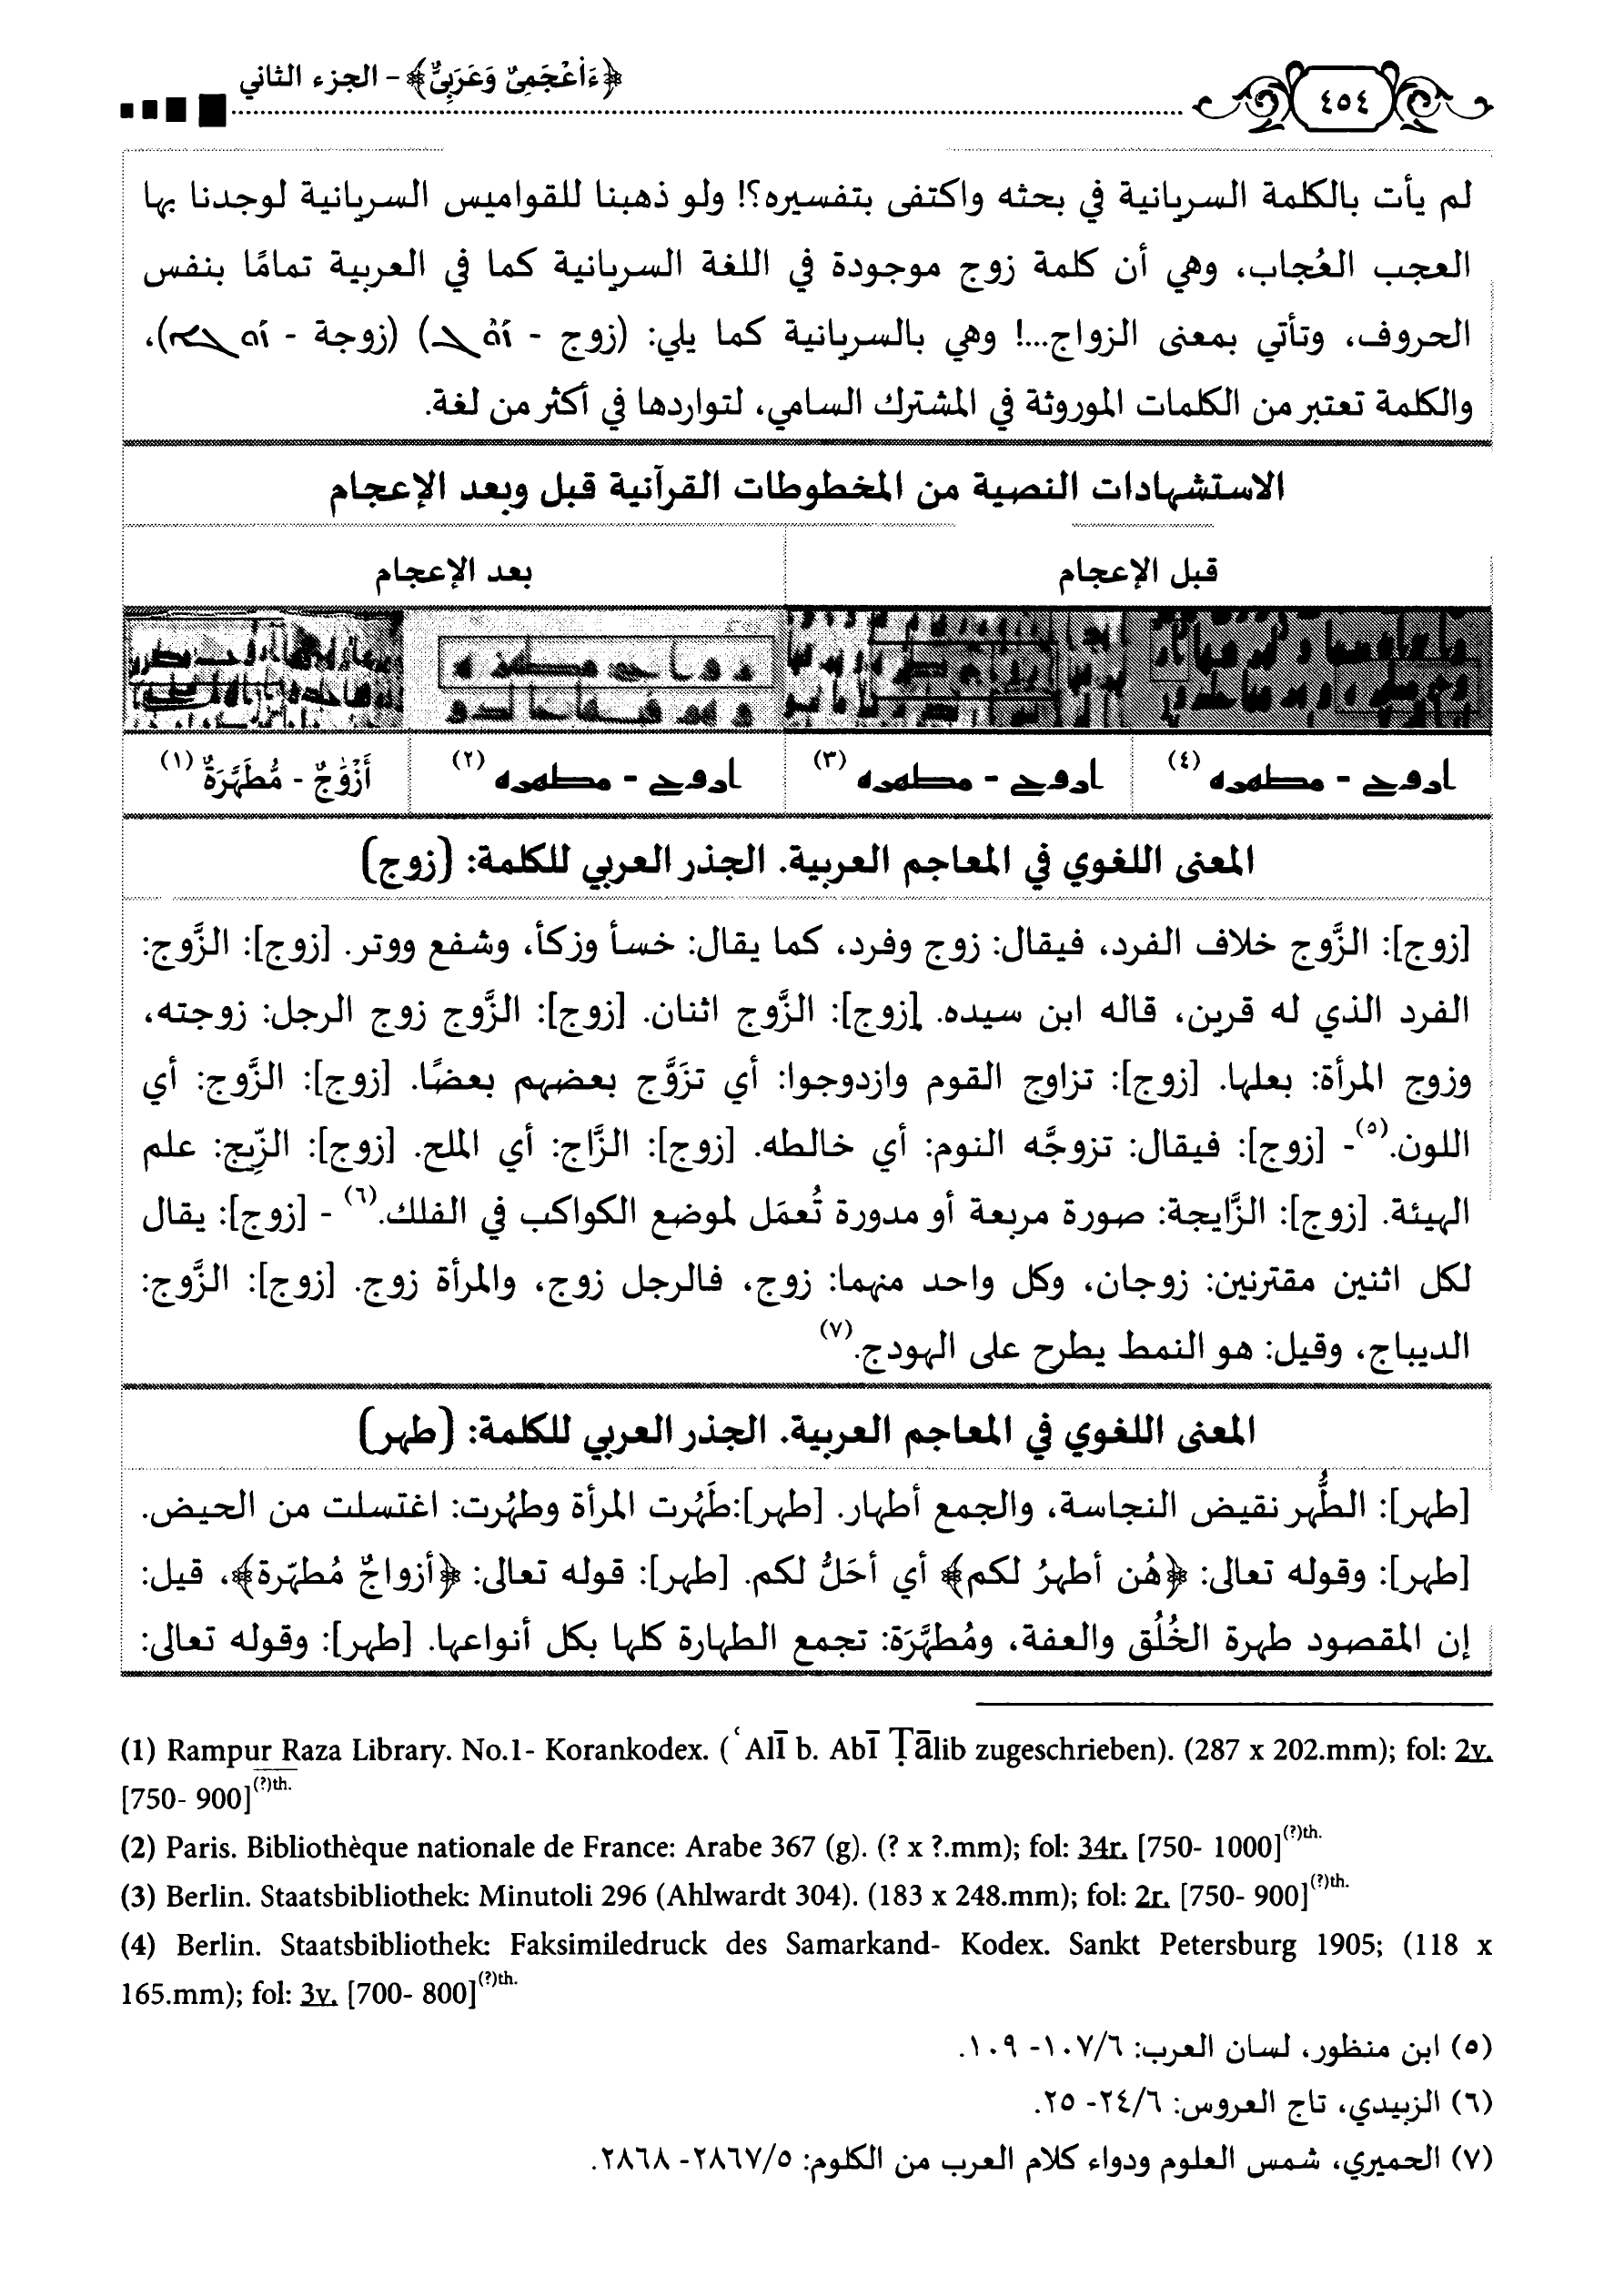 ﴿ءَاْعْجَمِىٌّ وَعَرَبِىٌّ﴾ - الجزء الثاني
٤٥٤
لم يأت بالكلمة السريانية في بحثه واكتفى بتفسيره؟! ولو ذهبنا للقواميس السريانية لوجدنا بها
العجب العُجاب، وهي أن كلمة زوج موجودة في اللغة السريانية كما في العربية تمامًا بنفس
الحروف، وتأتي بمعنى الزواج...! وهي بالسريانية كما يلي: (زوج - ) (زوجة - )،
والكلمة تعتبر من الكلمات الموروثة في المشترك السامي، لتواردها في أكثر من لغة.
الاستشهادات النصية من المخطوطات القرآنية قبل وبعد الإعجام
قبل الإعجام
بعد الإعجام
اروح - مطهره (٤)
اروح - مطهره (٣)
اروح - مطهره (٢)
أَزْوَٰجٌ - مُّطَهَّرَةٌ (١)
المعنى اللغوي في المعاجم العربية. الجذر العربي للكلمة: (زوج)
[زوج]: الزَّوج خلاف الفرد، فيقال: زوج وفرد، كما يقال: خسأ وزكأ، وشفع ووتر. [زوج]: الزَّوج:
الفرد الذي له قرين، قاله ابن سيده. [زوج]: الزَّوج اثنان. [زوج]: الزَّوج زوج الرجل: زوجته،
وزوج المرأة: بعلها. [زوج]: تزاوج القوم وازدوجوا: أي تزَوَّج بعضهم بعضًا. [زوج]: الزَّوج: أي
اللون.(٥)- [زوج]: فيقال: تزوجَّه النوم: أي خالطه. [زوج]: الزَّاج: أي الملح. [زوج]: الزِّيج: علم
الهيئة. [زوج]: الزَّايجة: صورة مربعة أو مدورة تُعمَل لموضع الكواكب في الفلك.(٦) - [زوج]: يقال
لكل اثنين مقترنين: زوجان، وكل واحد منهما: زوج، فالرجل زوج، والمرأة زوج. [زوج]: الزَّوج:
الديباج، وقيل: هو النمط يطرح على الهودج.(٧)
المعنى اللغوي في المعاجم العربية. الجذر العربي للكلمة: (طهر)
[طهر]: الطُّهر نقيض النجاسة، والجمع أطهار. [طهر]:طَهُرت المرأة وطهُرت: اغتسلت من الحيض.
[طهر]: وقوله تعالى: ﴿هُن أطهرُ لكم﴾ أي أحَلُّ لكم. [طهر]: قوله تعالى: ﴿أزواجٌ مُطهّرة﴾، قيل:
إن المقصود طهرة الخُلُق والعفة، ومُطهَّرَة: تجمع الطهارة كلها بكل أنواعها. [طهر]: وقوله تعالى:
(1) Rampur Raza Library. No.1- Korankodex. (ʿAlī b. Abī Ṭālib zugeschrieben). (287 x 202.mm); fol: 2v.
[750- 900](?)th.
(2) Paris. Bibliothèque nationale de France: Arabe 367 (g). (? x ?.mm); fol: 34r. [750- 1000](?)th.
(3) Berlin. Staatsbibliothek: Minutoli 296 (Ahlwardt 304). (183 x 248.mm); fol: 2r. [750- 900](?)th.
(4) Berlin. Staatsbibliothek: Faksimiledruck des Samarkand- Kodex. Sankt Petersburg 1905; (118 x
165.mm); fol: 3v. [700- 800](?)th.
(٥) ابن منظور، لسان العرب: ١٠٧/٦- ١٠٩.
(٦) الزبيدي، تاج العروس: ٢٤/٦- ٢٥.
(٧) الحميري، شمس العلوم ودواء كلام العرب من الكلوم: ٢٨٦٧/٥- ٢٨٦٨.